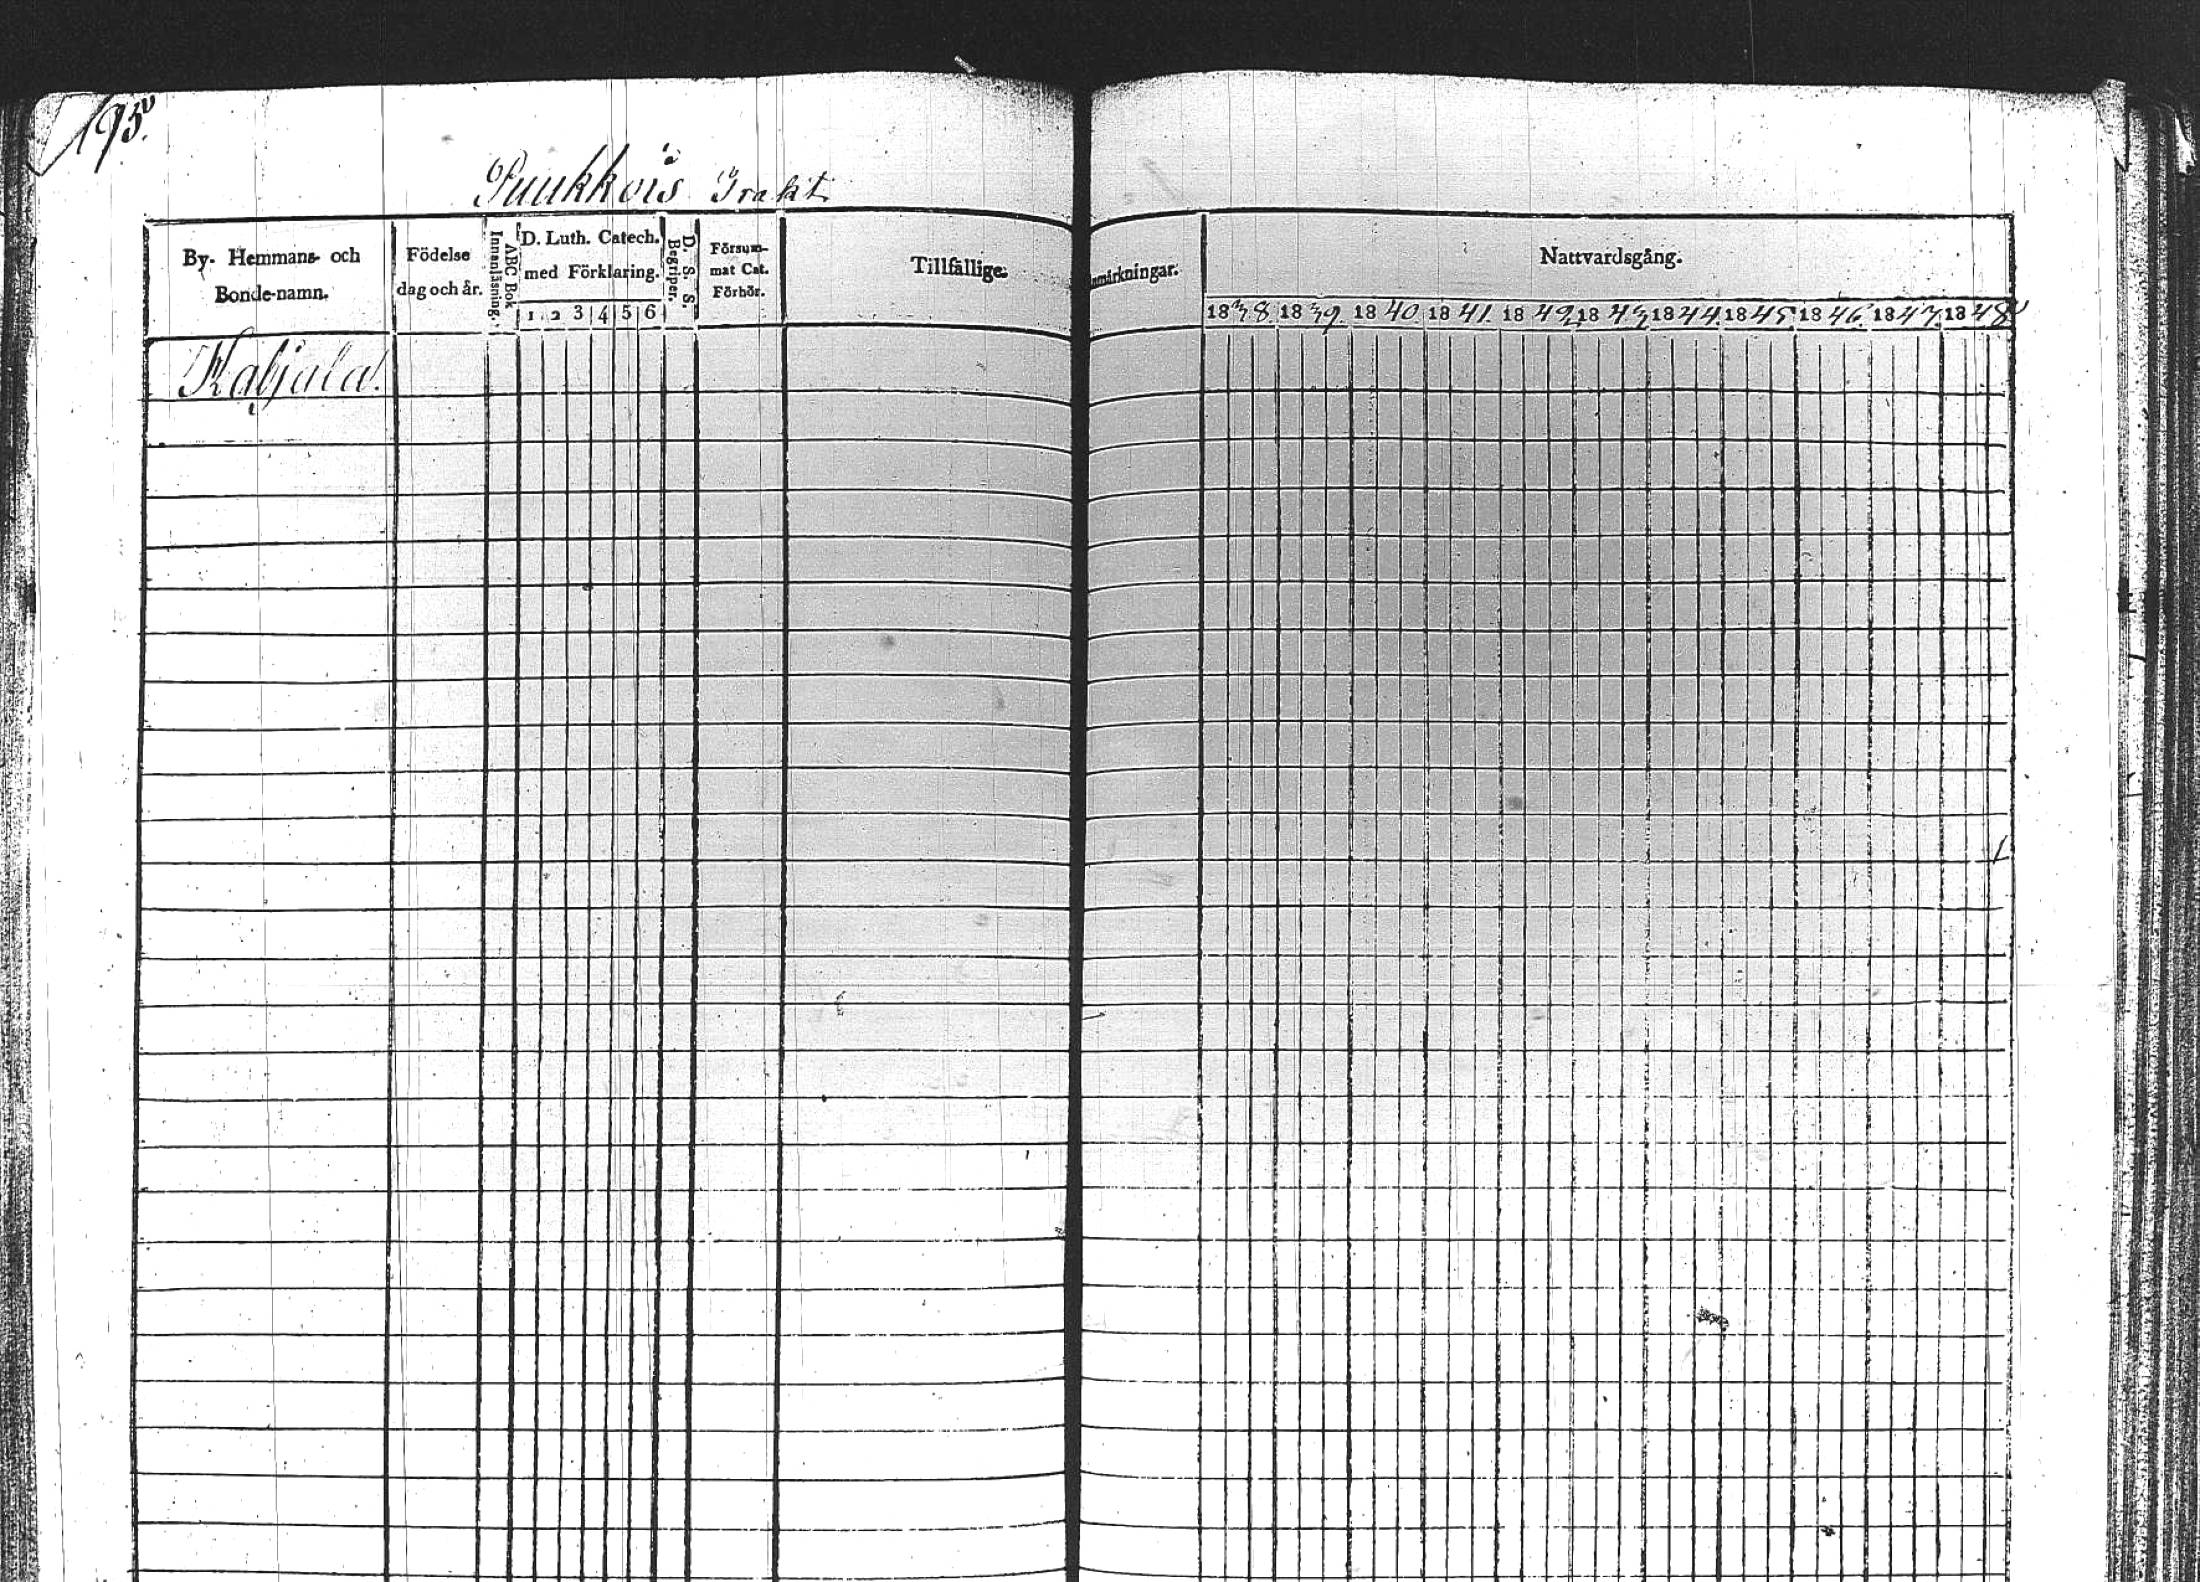 195.
Puukkois Trakt
By- Hemmans- och
Bonde-namn.
Födelse
dag och år.
Innanläsning.
ABC Bok
D. Luth. Catech.
med Förklaring.
1 2 3 4 5 6
D. S. S.
Begriper.
Försum-
mat Cat.
Förhör.
Tillfällige
anmärkningar.
Nattvardsgång.
1838. 1839. 1840 1841. 1842. 1843. 1844. 1845. 1846. 1847. 1848
Kaljala.